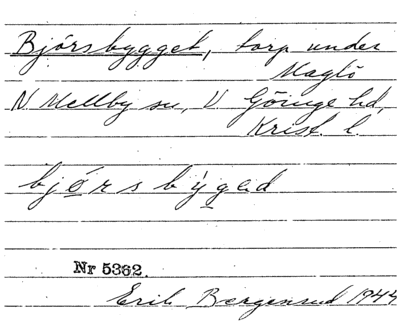 Björsbygget, torp under
Maglö
N Mellby sn, V Göinge hd,
Krist. l.
bjǫrsbyg̨ed
Nr 5362.
Erik Bergensund 1944